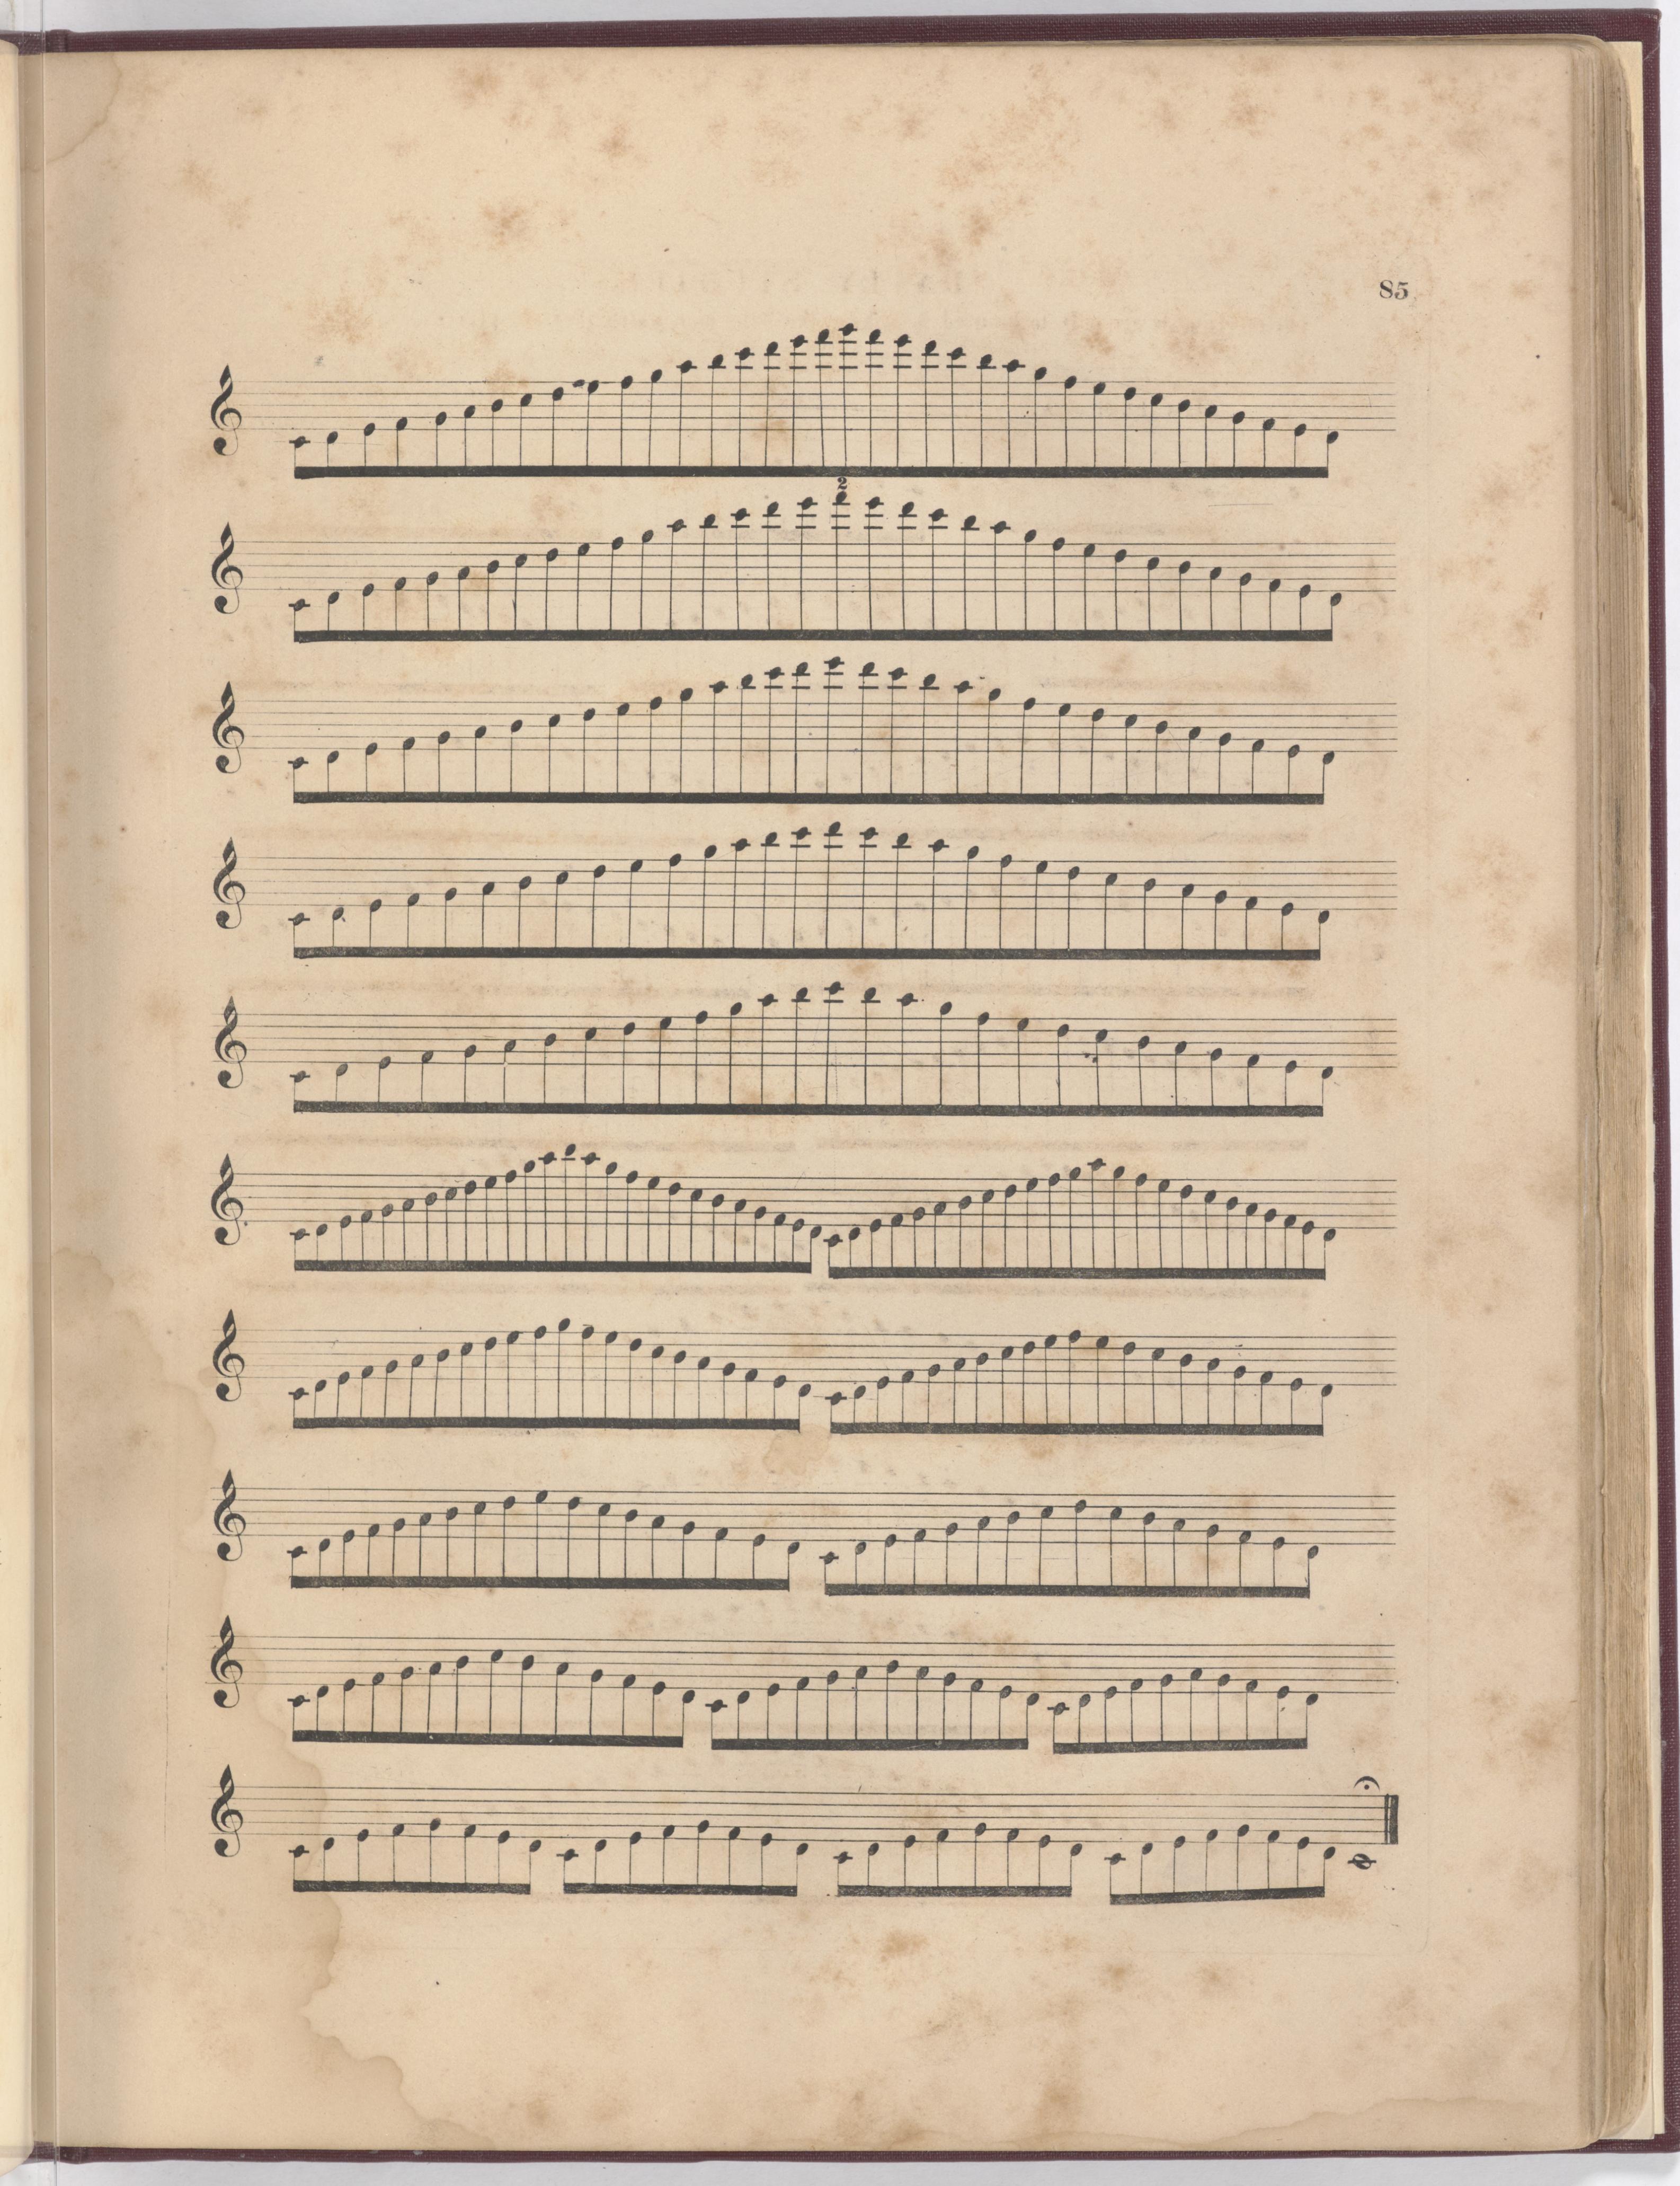 85
2